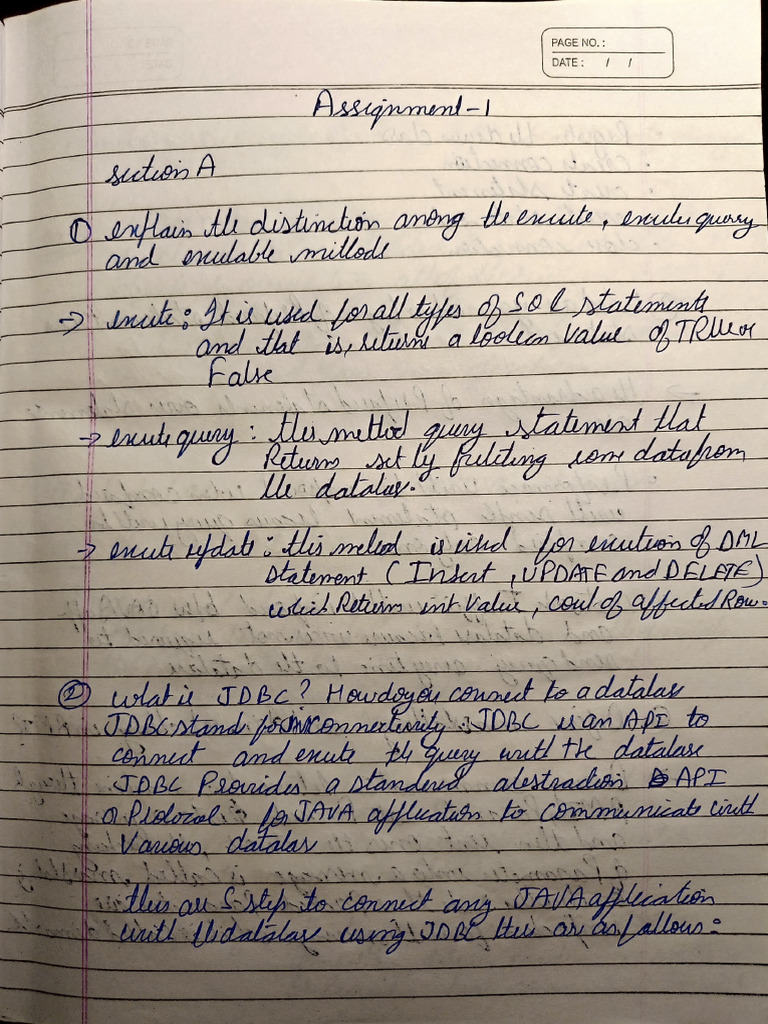 PAGE NO. :
DATE : / /
Assignment-1
section A
① explain the distinction among the execute, execute query
and exculable methods
→ execute : It is used for all types of SQL statements
and that is, returns a boolean value of TRUE or
False
→ execute query : this method query statement that
Returns set by fetching some data from
the database.
→ execute update : this method is used for execution of DML
statement (Insert, UPDATE and DELETE)
which Return int Value, cout of affected Row.
② what is JDBC? How do you connect to a database
JDBC stand for JAVA connectivity. JDBC is an API to
connect and execute the query with the database
JDBC Provides a standered abestraction API
or Protocol for JAVA application to communicate with
Various, database
this are 5-step to connect any JAVA application
with the database using JDBC this ar as follows: